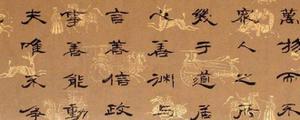 萬物而不
衆人之所
幾于道居
心善淵與
言善信政
事善能動
夫唯不爭